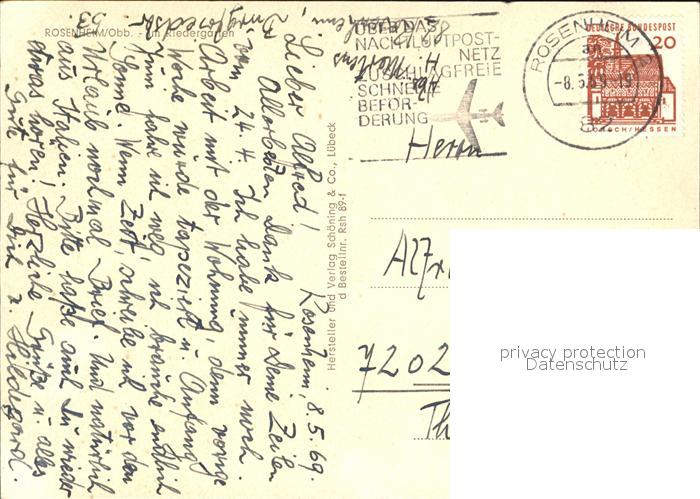 ROSENHEIM/Obb. - Im Riedergarten
Rosenheim, 8.5.69.
Lieber Alfred!
Allerbesten Dank für Deine Zeilen
vom 24.4. Ich habe immer noch
Arbeit mit der Wohnung, denn vorige
Woche wurde tapeziert u. Anfang
Juni fahre ich weg, ich brauche endlich
Sonne. Wenn Zeit, schreibe ich vor dem
Urlaub nochmal Brief. Und natürlich
aus Italien. Bitte laße auch Du wieder
etwas hören! Herzliche Grüße u. alles
Gute für Dich v. Hildegard.
53
Hersteller und Verlag Schöning & Co., Lübeck
d Bestellnr. Rsh 89-f
ÜBER DAS
NACHTLUFTPOST-
NETZ
ZUSCHLAGFREIE
SCHNELLE
BEFÖR-
DERUNG
ROSENHEIM 2
-8.5.69-19
DEUTSCHE BUNDESPOST
20
LORSCH/HESSEN
Herrn
7202
privacy protection
Datenschutz